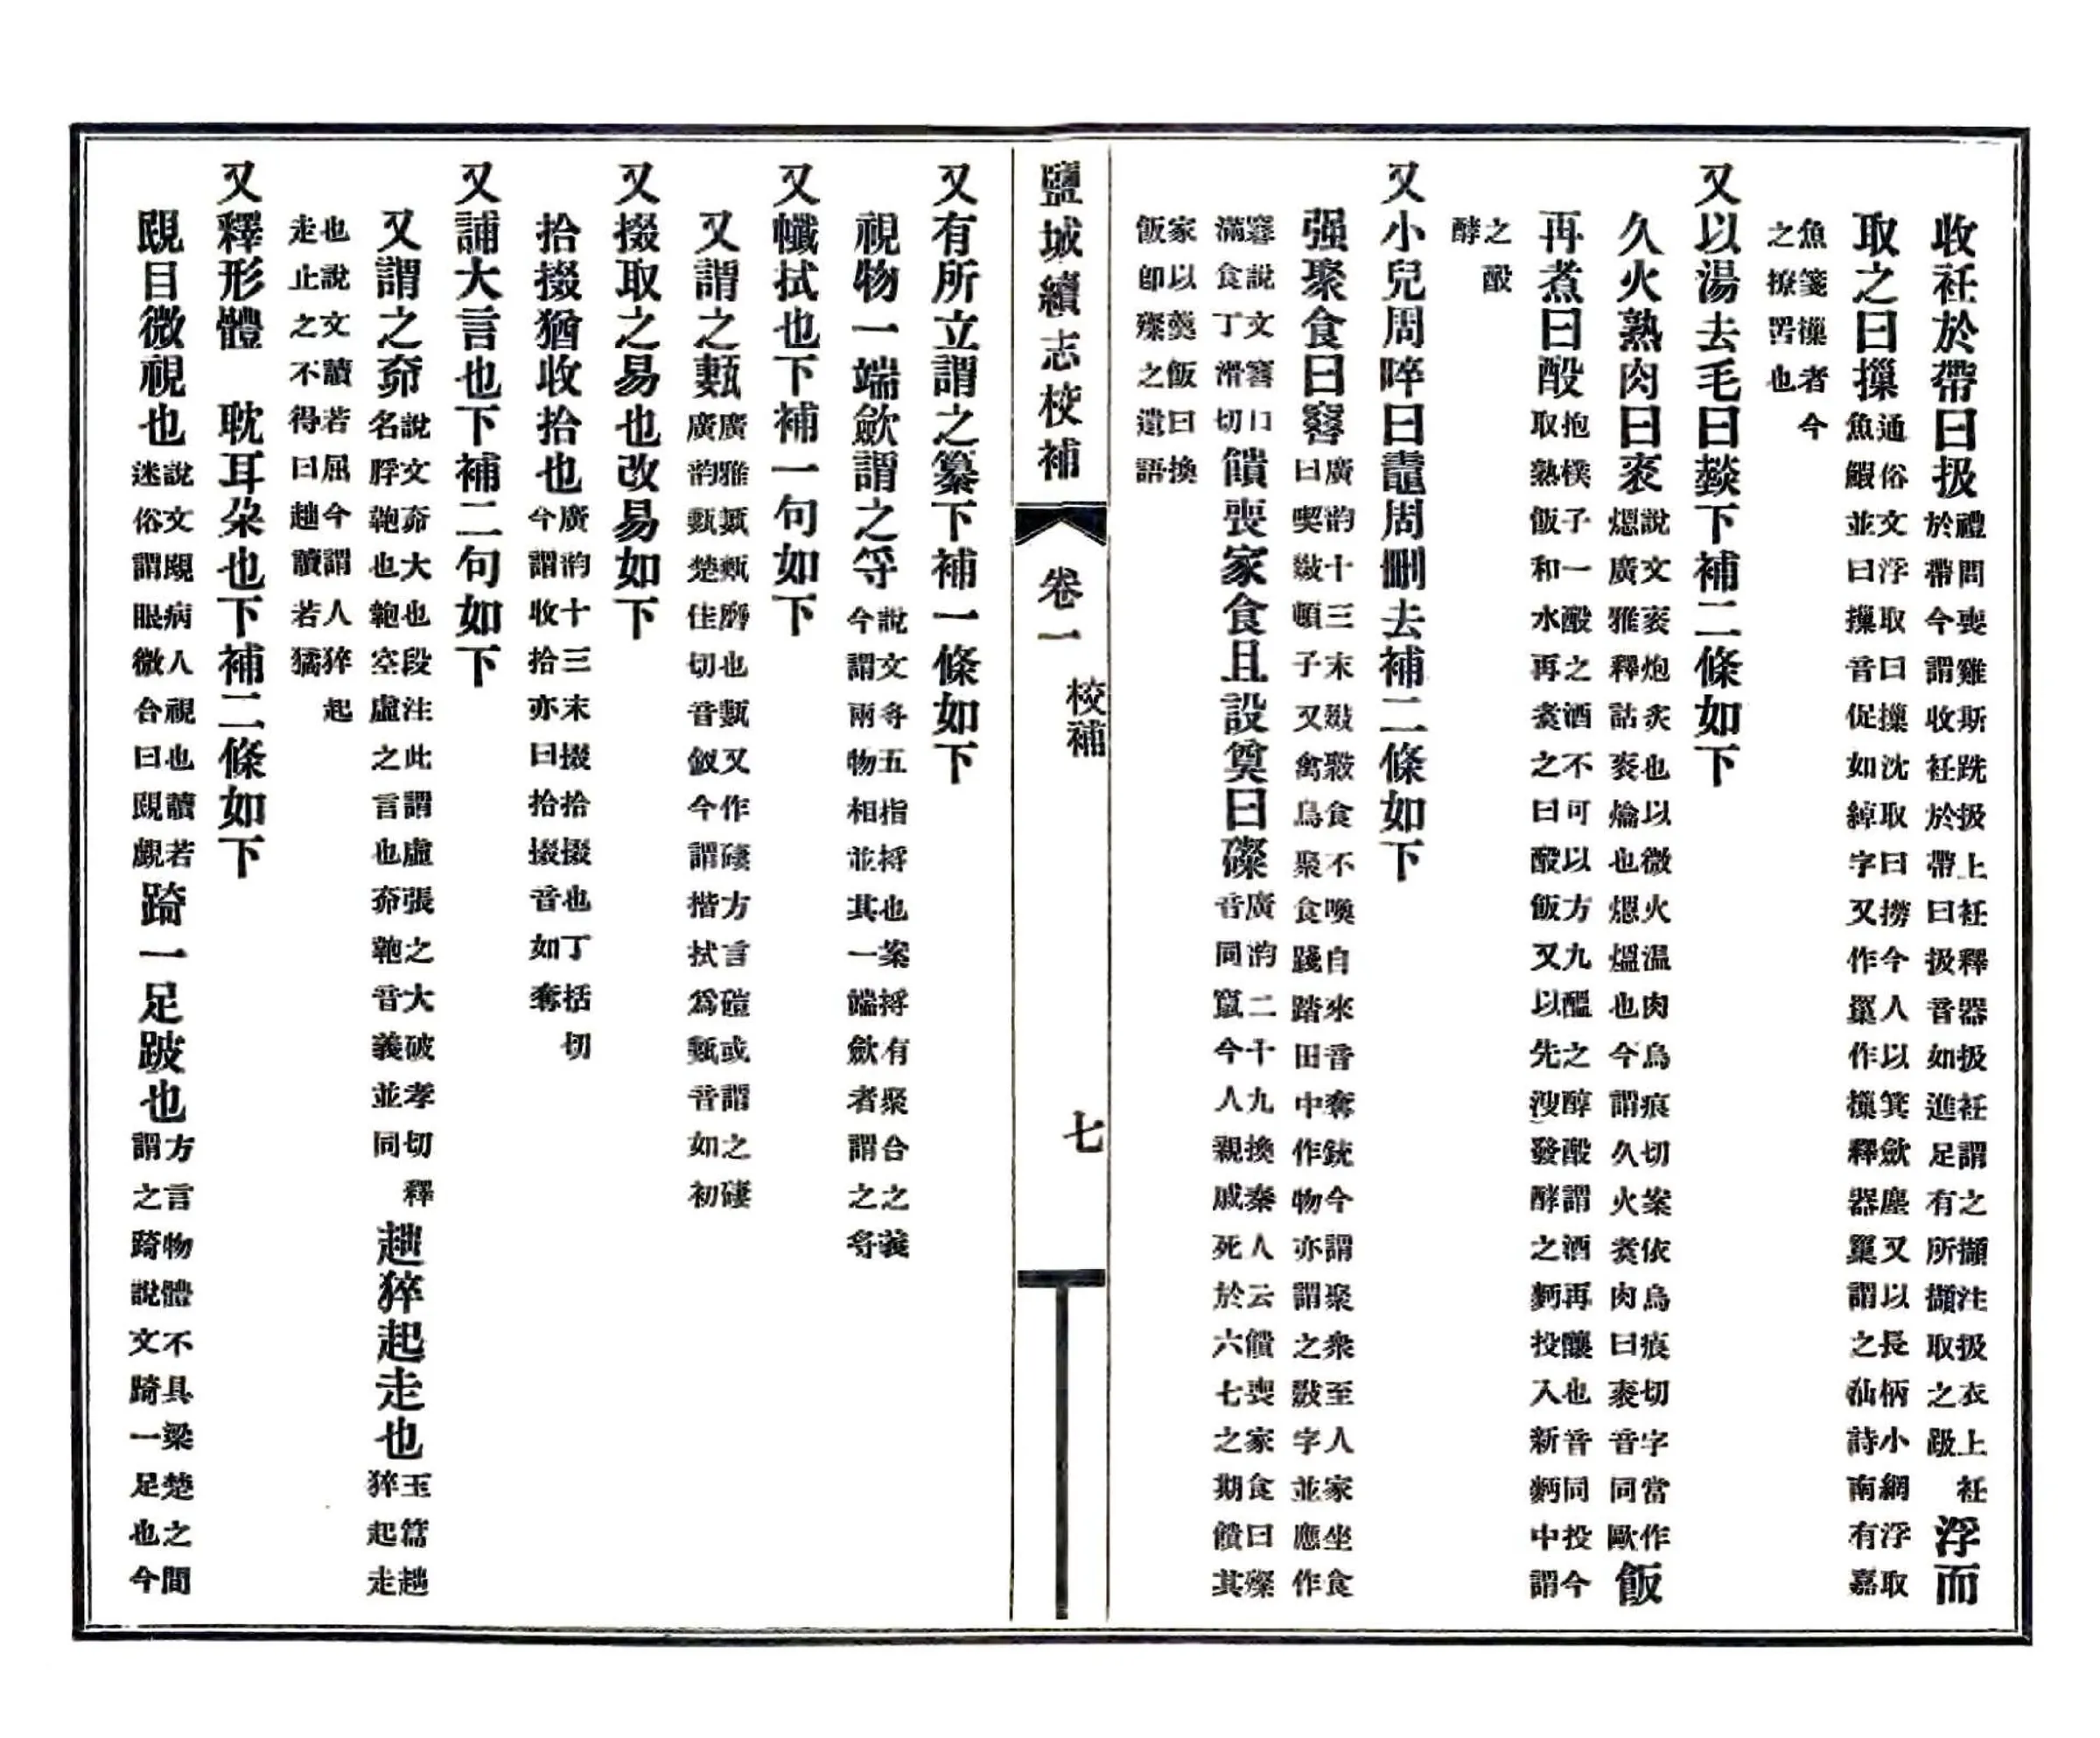 收衽於帶曰扱禮問喪雞斯跣扱上衽釋器扱衽謂之擷注扱衣上衽於帶今謂收衽於帶曰扱音如進足有所擷取之趿浮而
取之曰摷通俗文浮取曰摷沈取曰撈今人以箕斂塵又以長柄小網浮取魚鰕並曰摷音促如綽字又作罺作樔釋器罺謂之汕詩南有嘉
魚箋樔者今之撩罟也
又以湯去毛曰燅下補二條如下
久火熟肉曰說文炮炙也以微火温肉烏痕切案依烏痕切字當作煾廣雅釋詁爚也煾熅也今謂久火煑肉曰音同歐飯
再煮曰酘抱樸子一酘之酒不可以方九醞之醇酘謂酒再釀也音同投今取熟飯和水再煑之曰酘飯又以先溲發酵之麪投入新麪中謂
之酘酵
又小兒周晬曰周刪去補二條如下
强聚食曰窡廣韵十三末敠食不喚自來音奪銃今謂聚衆至人家坐食曰喫敠頓子又禽鳥聚食踐踏田中作物亦謂之敠字並應作
窡說文窡口滿食丁滑切饙喪家食且設奠曰廣韵二十九換秦人云饙喪家食曰音同竄今人親戚死於六七之期饙其
家以羹飯曰換飯卽之遺語
鹽城續志校補 卷一 校補 七
又有所立謂之纂下補一條如下
視物一端歛謂之寽說文寽五指捋也案捋有聚合之義今謂兩物相並其一端歛者謂之寽
又幟拭也下補一句如下
又謂之㼽廣雅㼽甄磨也㼽又作磢方言磑或謂之磢廣韵㼽楚佳切音釵今謂揩拭爲㼽音如初
又掇取之易也改易如下
拾掇猶收拾也廣韵十三末掇拾掇也丁括切今謂收拾亦曰拾掇音如奪
又誧大言也下補二句如下
又謂之奅說文奅大也段注此謂虛張之大破孝切釋名脬鞄也鞄空虛之言也奅鞄音義並同趉猝起走也玉篇趉猝起走
也說文讀若屈今謂人猝起走止之不得曰趉讀若獝
又釋形體 耽耳朵也下補二條如下
覞目微視也說文覞病人視也讀若迷俗謂眼微合曰覞覷踦一足跛也方言物體不具梁楚之間謂之踦說文踦一足也今